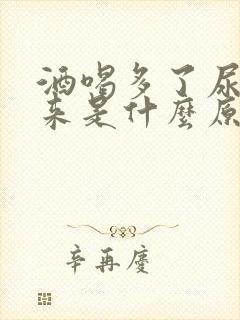 酒喝多了尿
来是什麼原
辛再慶